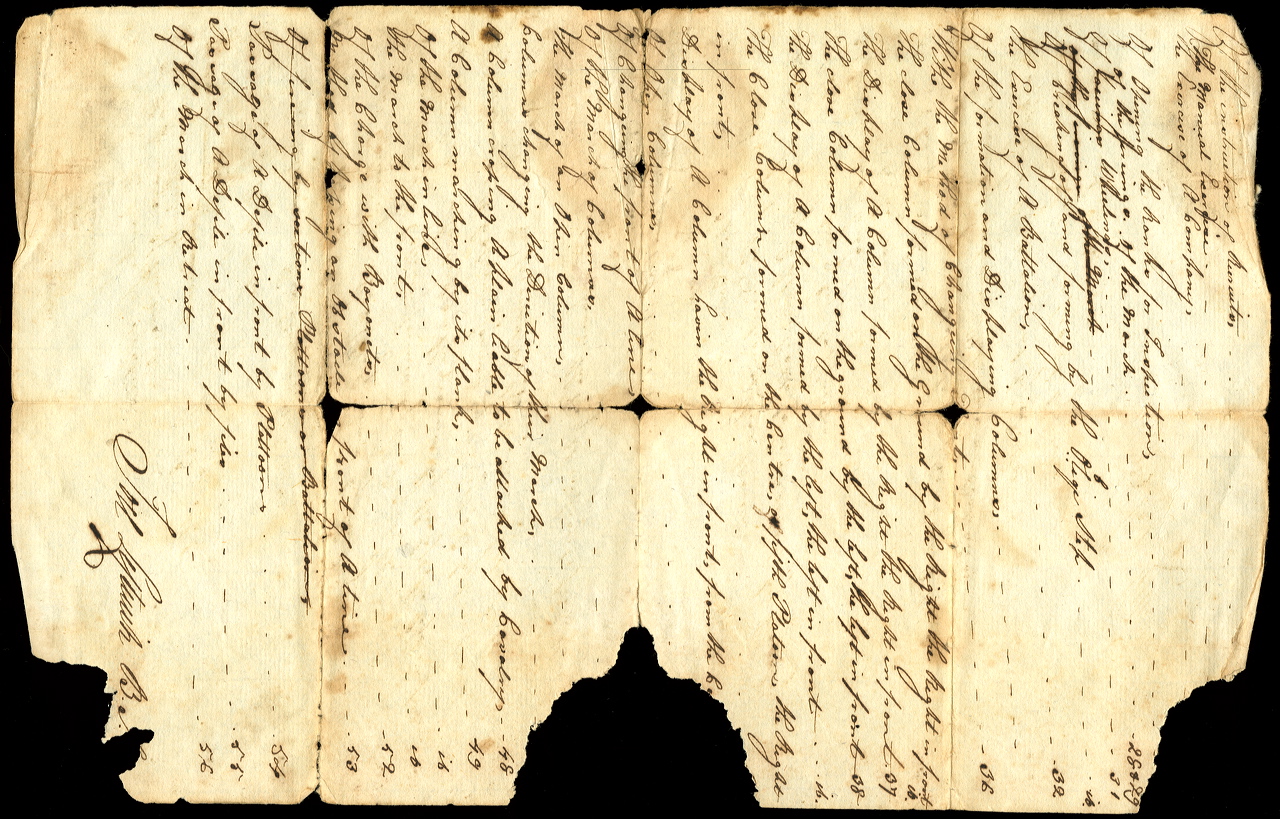 Of the instruction of Recruits,
The Manual Exercise
The Exercise of A Company,
Of Opening the Ranks for Inspection,
Of the firings, of the March
Of Wheeling,
Of Breaking off and forming by the Oblige Step.
The Exercise of A Battalion,
Of the formation and Displaying Columns.
With the Method of Changing
The close Column formed on the Ground by the Right the Right in front ib.
The Display of A Column formed by the Right the Right in front 37
The close Column formed on the ground by the left, the left in front 38
The Display of A Column formed by the left, the left in front ib.
The Close Column formed on the Centre, or fifth Platoon, the Right
in front,
Display of A Column having the Right in front, from the Ce
Of Open Columns,
Of Changing the front of A line
Of the March of Columns,
The March of an Open Column,
Column changing the Direction of their March,
A Column crossing A plain liable to be attacked by Cavalry, 48
A Column marching by its flank, 49
Of the March in line, ib
The March to the front, ib
Of the Charge with Bayonets, 52
Method of passing an Obstacle front of A line 53
Of firing by sections Platoons or Battalions
Passage of A Defile in front by Platoons 54
Passage of A Defile in front by files 55
Of the March in Retreat 56
28 & 29
31
ib.
32
36